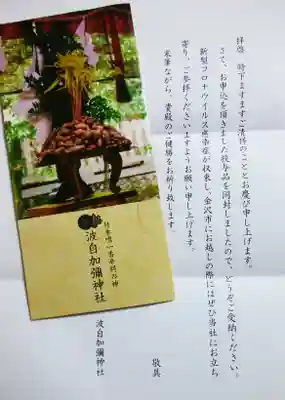 拝啓　時下ますますご清祥のこととお慶び申し上げます。
さて、お申込を頂きました授与品を同封しましたので、どうぞご受納ください。
新型コロナウイルス感染症が収束し、金沢市にお越しの際にはぜひ当社にお立ち
寄り、ご参拝くださいますようお願い申し上げます。
末筆ながら、貴殿のご健勝をお祈り致します。
敬具
波自加彌神社
日本唯一香辛料の神
波自加彌神社